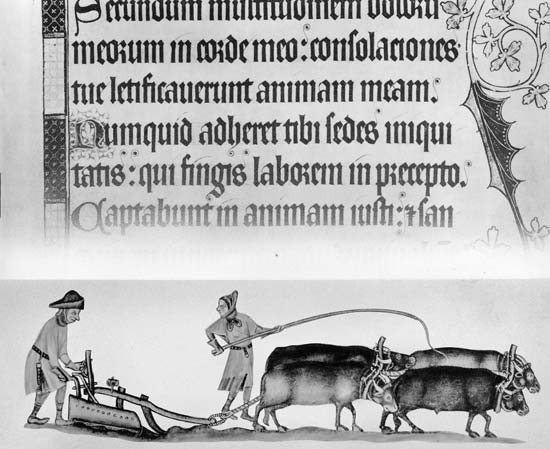 Secundum multitudinem doloru
meorum in corde meo: consolaciones
tue letificauerunt animam meam.
Numquid adheret tibi sedes iniqui
tatis: qui fingis laborem in precepto.
Captabunt in animam iusti: ⁊ san